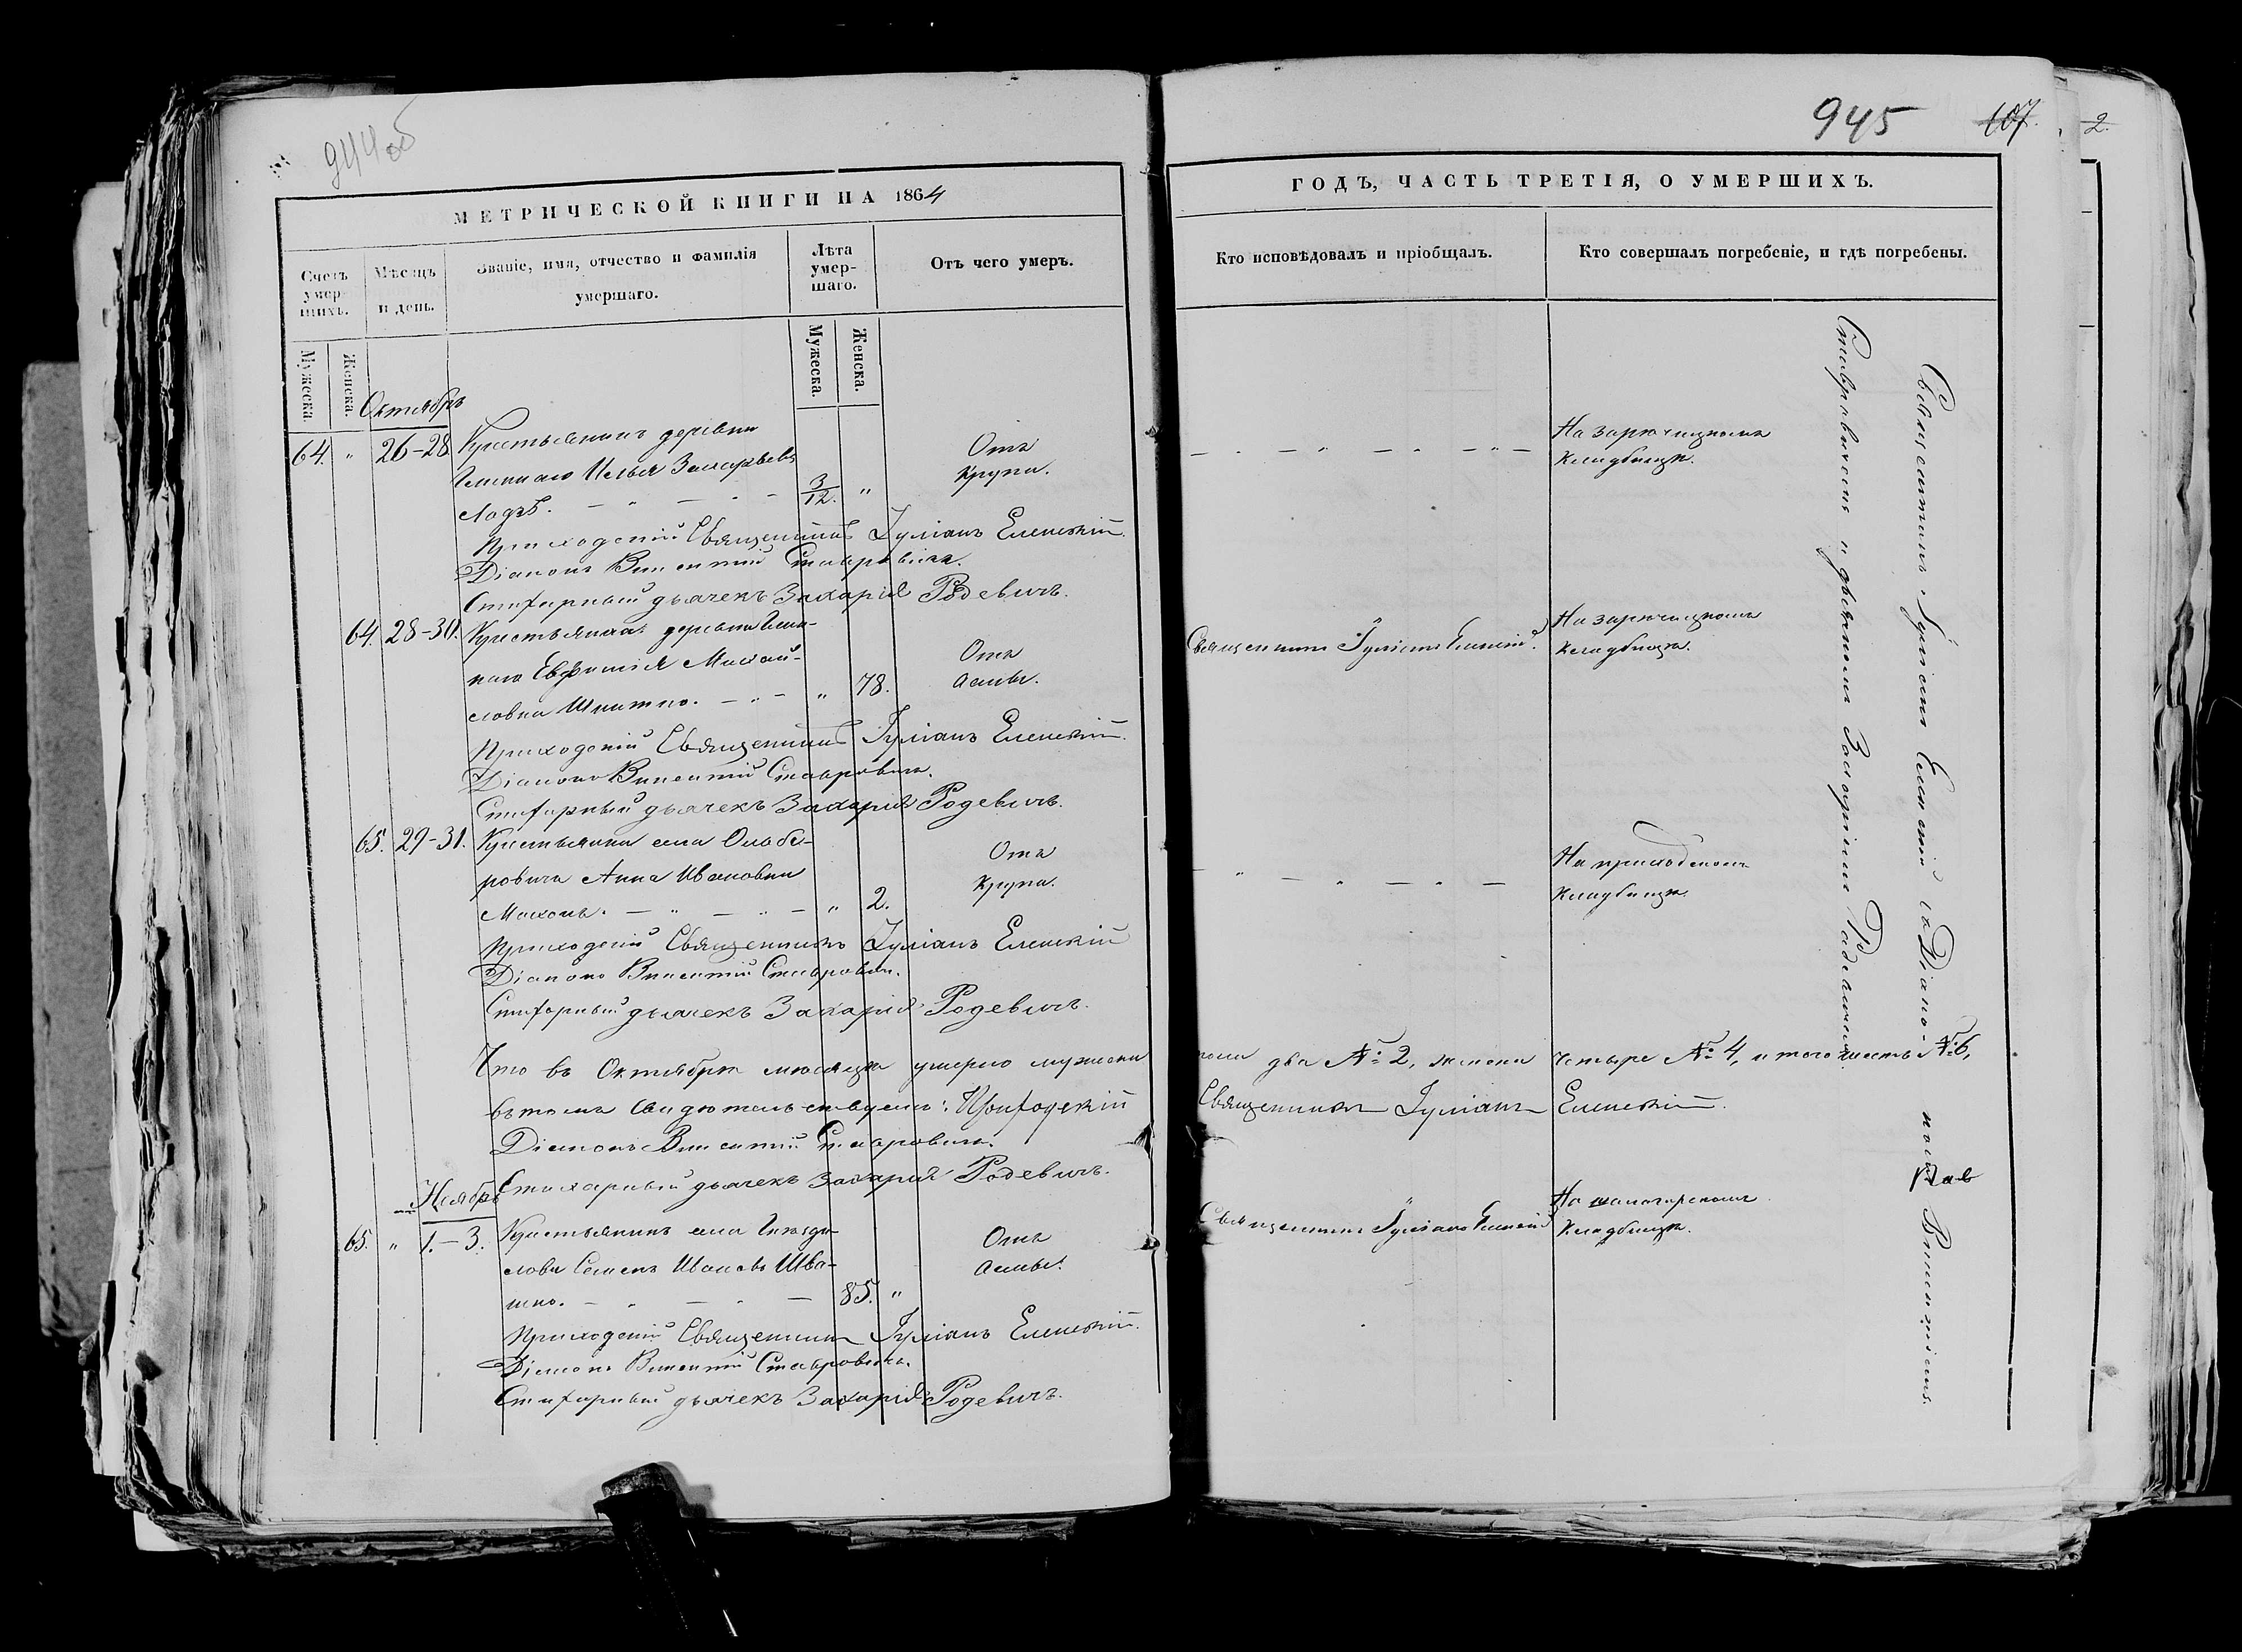 944об
МЕТРИЧЕСКОЙ КНИГИ НА 1864
Счетъ умершихъ.
Мѣсяцъ и день.
Званіе, имя, отчество и фамилія умершаго.
Лѣта умершаго.
Отъ чего умеръ.
Мужеска.
Женска.
Мужеска.
Женска.
Октябрь
64. " 26-28 Крестьянинъ деревни
Илья Захарьевъ
3/12. "
Отъ
крупа.
Приходскій Священникъ Іуліанъ Еленскій
Діаконъ Викентій Ставровичъ.
Стихарный дьячекъ Захарія Родевичъ.
64. 28-30. Крестьянка деревни
Евфимія
словна " 78.
Отъ
Астмы.
Приходскій Священникъ Іуліанъ Еленскій
Діаконъ Викентій Ставровичъ.
Стихарный дьячекъ Захарія Родевичъ.
65. 29-31. Крестьянка села
ровичъ Анна Иванова
" 2.
Отъ
крупа.
Приходскій Священникъ Іуліанъ Еленскій
Діаконъ Викентій Ставровичъ.
Стихарный дьячекъ Захарія Родевичъ.
Что въ Октябрѣ мѣсяцѣ умерло мужеска
въ томъ свидѣтельствуемъ: Приходскій
Діаконъ Викентій Ставровичъ.
Стихарный дьячекъ Захарія Родевичъ.
Ноябрь
65. " 1.-3. Крестьянинъ села
Семенъ Ивановъ
85. "
Отъ
Астмы.
Приходскій Священникъ Іуліанъ Еленскій
Діаконъ Викентій Ставровичъ.
Стихарный дьячекъ Захарія Родевичъ.
945 107.
2.
ГОДЪ, ЧАСТЬ ТРЕТІЯ, О УМЕРШИХЪ.
Кто исповѣдовалъ и пріобщалъ.
Кто совершалъ погребеніе, и гдѣ погребены.
На зарѣчицкомъ
кладбищѣ.
Священникъ Іуліанъ Еленскій.
На зарѣчицкомъ
кладбищѣ.
На приходскомъ
кладбищѣ.
пола два № 2, женска четыре № 4, итого шесть № 6,
Священникъ Іуліанъ Еленскій.
Священникъ Іуліанъ Еленскій
На
кладбищѣ.
Священникъ Іуліанъ Еленскій съ Діакономъ Викентіемъ
Ставровичемъ и дьячкомъ Захаріемъ Родевичемъ.